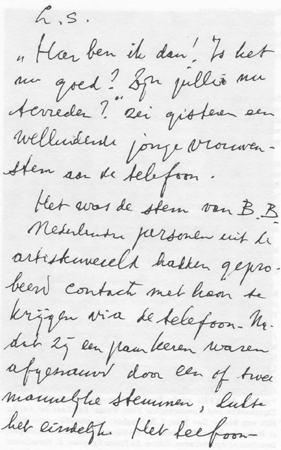 L.S.
„Hier ben ik dan! Is het
nu goed? Zijn jullie nu
tevreden?" zei gisteren een
welluidende jonge vrouwen-
stem aan de telefoon.
Het was de stem van B.B
Nederlandse personen uit de
artiestenwereld hadden gepro-
beerd contact met haar te
krijgen via de telefoon. Na-
dat zij een paar keren waren
afgesnauwd door een of twee
mannelijke stemmen, lukte
het eindelijk Het telefoon-